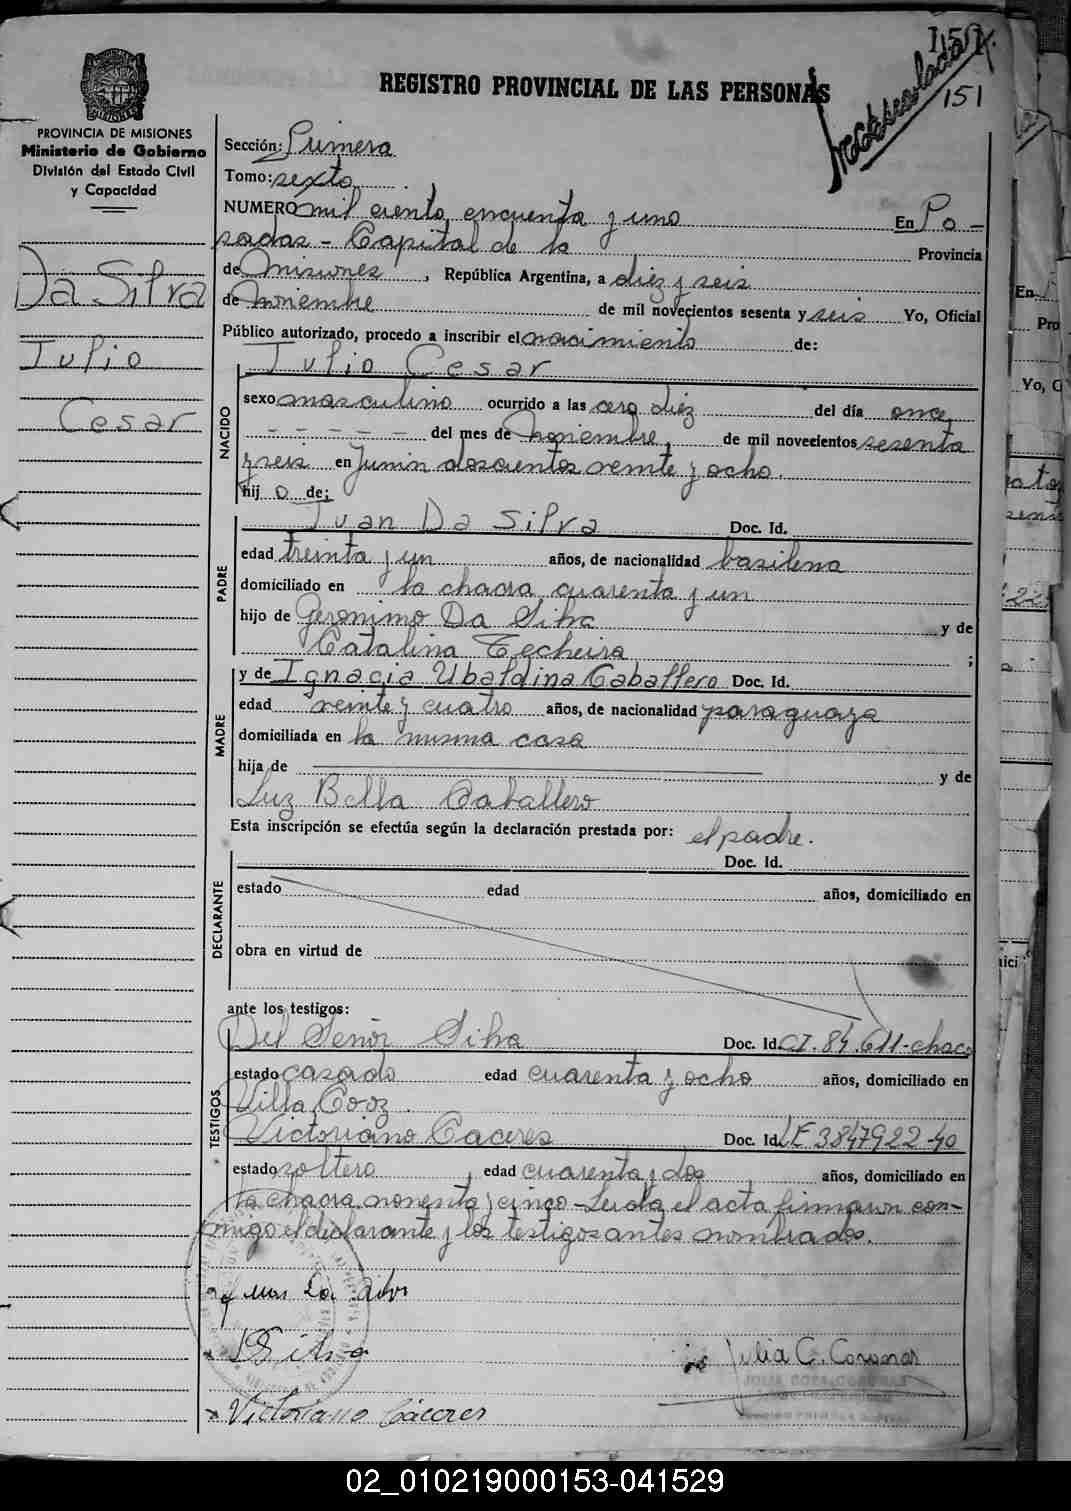 151
151
REGISTRO PROVINCIAL DE LAS PERSONAS
PROVINCIA DE MISIONES
Ministerio de Gobierno
División del Estado Civil
y Capacidad
Da Silva
Julio
Cesar
Sección: Primera
Tomo: sexto
NUMERO mil ciento cincuenta y uno En Po-
sadas - Capital de la Provincia
de Misiones, República Argentina, a diez y seis
de Noviembre de mil novecientos sesenta y seis Yo, Oficial
Público autorizado, procedo a inscribir el nacimiento de:
Julio Cesar
NACIDO
sexo masculino ocurrido a las cero diez del día once
del mes de Noviembre, de mil novecientos sesenta
y seis en Junin doscientos veinte y ocho.
hijo de:
PADRE
Juan Da Silva Doc. Id.
edad treinta y un años, de nacionalidad basilena
domiciliado en la chacra cuarenta y un
hijo de Geronimo Da Silva y de
Catalina Techeira ;
MADRE
y de Ignacia Ubaldina Caballero Doc. Id.
edad veinte y cuatro años, de nacionalidad paraguaya
domiciliada en la misma casa
hija de y de
Luz Bella Caballero
Esta inscripción se efectúa según la declaración prestada por: el padre.
DECLARANTE
Doc. Id.
estado edad años, domiciliado en
obra en virtud de
ante los testigos:
TESTIGOS
Del Señor Silva Doc. Id. CI. 84.611-chaco
estado casado edad cuarenta y ocho años, domiciliado en
Villa Cooz.
Victoriano Caceres Doc. Id. LE 3847922-40
estado soltero, edad cuarenta y dos años, domiciliado en
la chacra noventa y cinco - Leida el acta firmaron con-
migo el declarante y los testigos antes nombrados.
Juan Da Silva
D S Silva
Julia C. Coronar
Victoriano Cáceres
02_010219000153-041529